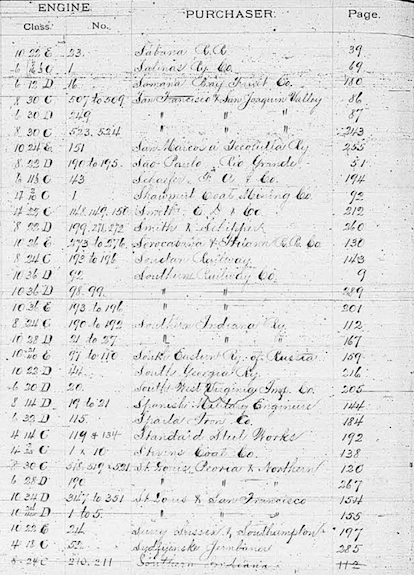 ENGINE. PURCHASER. Page.
Class. No.
10 22 E 23. Sabana R.R. 39
1. Salinas Ry. Co. 69
6 12 D 16. Samana Bay Fruit Co. 180
8 30 C 507 to 509 San Francisco & San Joaquin Valley 86
6 30 D 249 " " 87
8 30 C 523, 524 " " 243
10 24 E 151 San Marcos a Tecolutla Ry 255
8 22 D 190 to 195. Sao Paulo & Rio Grande 51
43 Schaefer & Co. 194
1 Shawmut Coal Mining Co. 92
4 22 C 148, 149, 150 Smith 212
8 22 D 199, 271, 272 Smith & 260
10 26 E 273 to 276 Sorocabana & Ituana R.R. Co 130
8 24 C 193 to 196 Railway 143
10 36 D 92 Southern Railway Co. 9
10 36 D 98.99. " " 289
10 36 E 193 to 196 " " 201
8 24 C 190 to 192 Southern Indiana Ry. 112
10 28 D 21 to 27 " " 167
97 to 110 South Eastern Ry. of Russia 159
10 22 D 44. South Georgia Ry. 216
6 20 D 20. South West Virginia Imp. Co. 205
8 14 D 19 to 21 Spanish Military Engineers 144
6 32 D 115. Spada Iron Co. 184
4 14 C 119 & 134 Standard Steel Works 192
1 & 10 Stevens Coal Co. 138
30 C 518, 519 & 521 St Louis, Peoria & Northern 120
6 28 D 190 " " 287
10 34 D 347 to 351 St Louis & San Francisco 154
D 1 to 5. " " 155
10 22 E 24. Surry Sussex & Southampton 197
4 18 C 52. Sydfyenske Jernbaner 285
8 24 C 210, 211 Southern Indiana 112